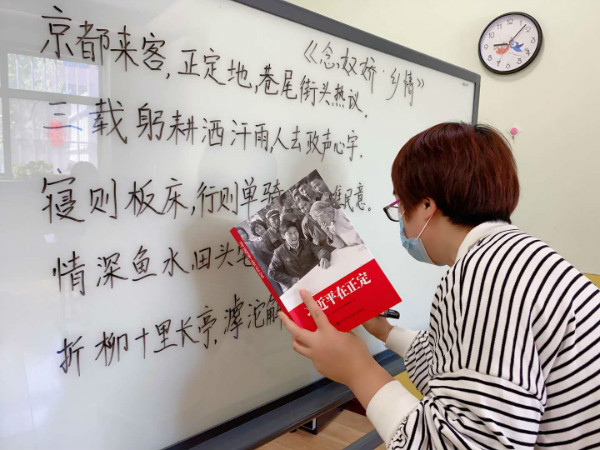 《念奴娇·乡情》
京都来客,正定地,巷尾街头热议。
三载躬耕洒汗雨,人去政声心宇.
寝则板床,行则单骑 民意.
情深鱼水,田头
折柳十里长亭,滹沱
近平在正定